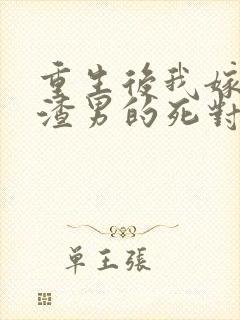 重生後我嫁
渣男的死對
单王張